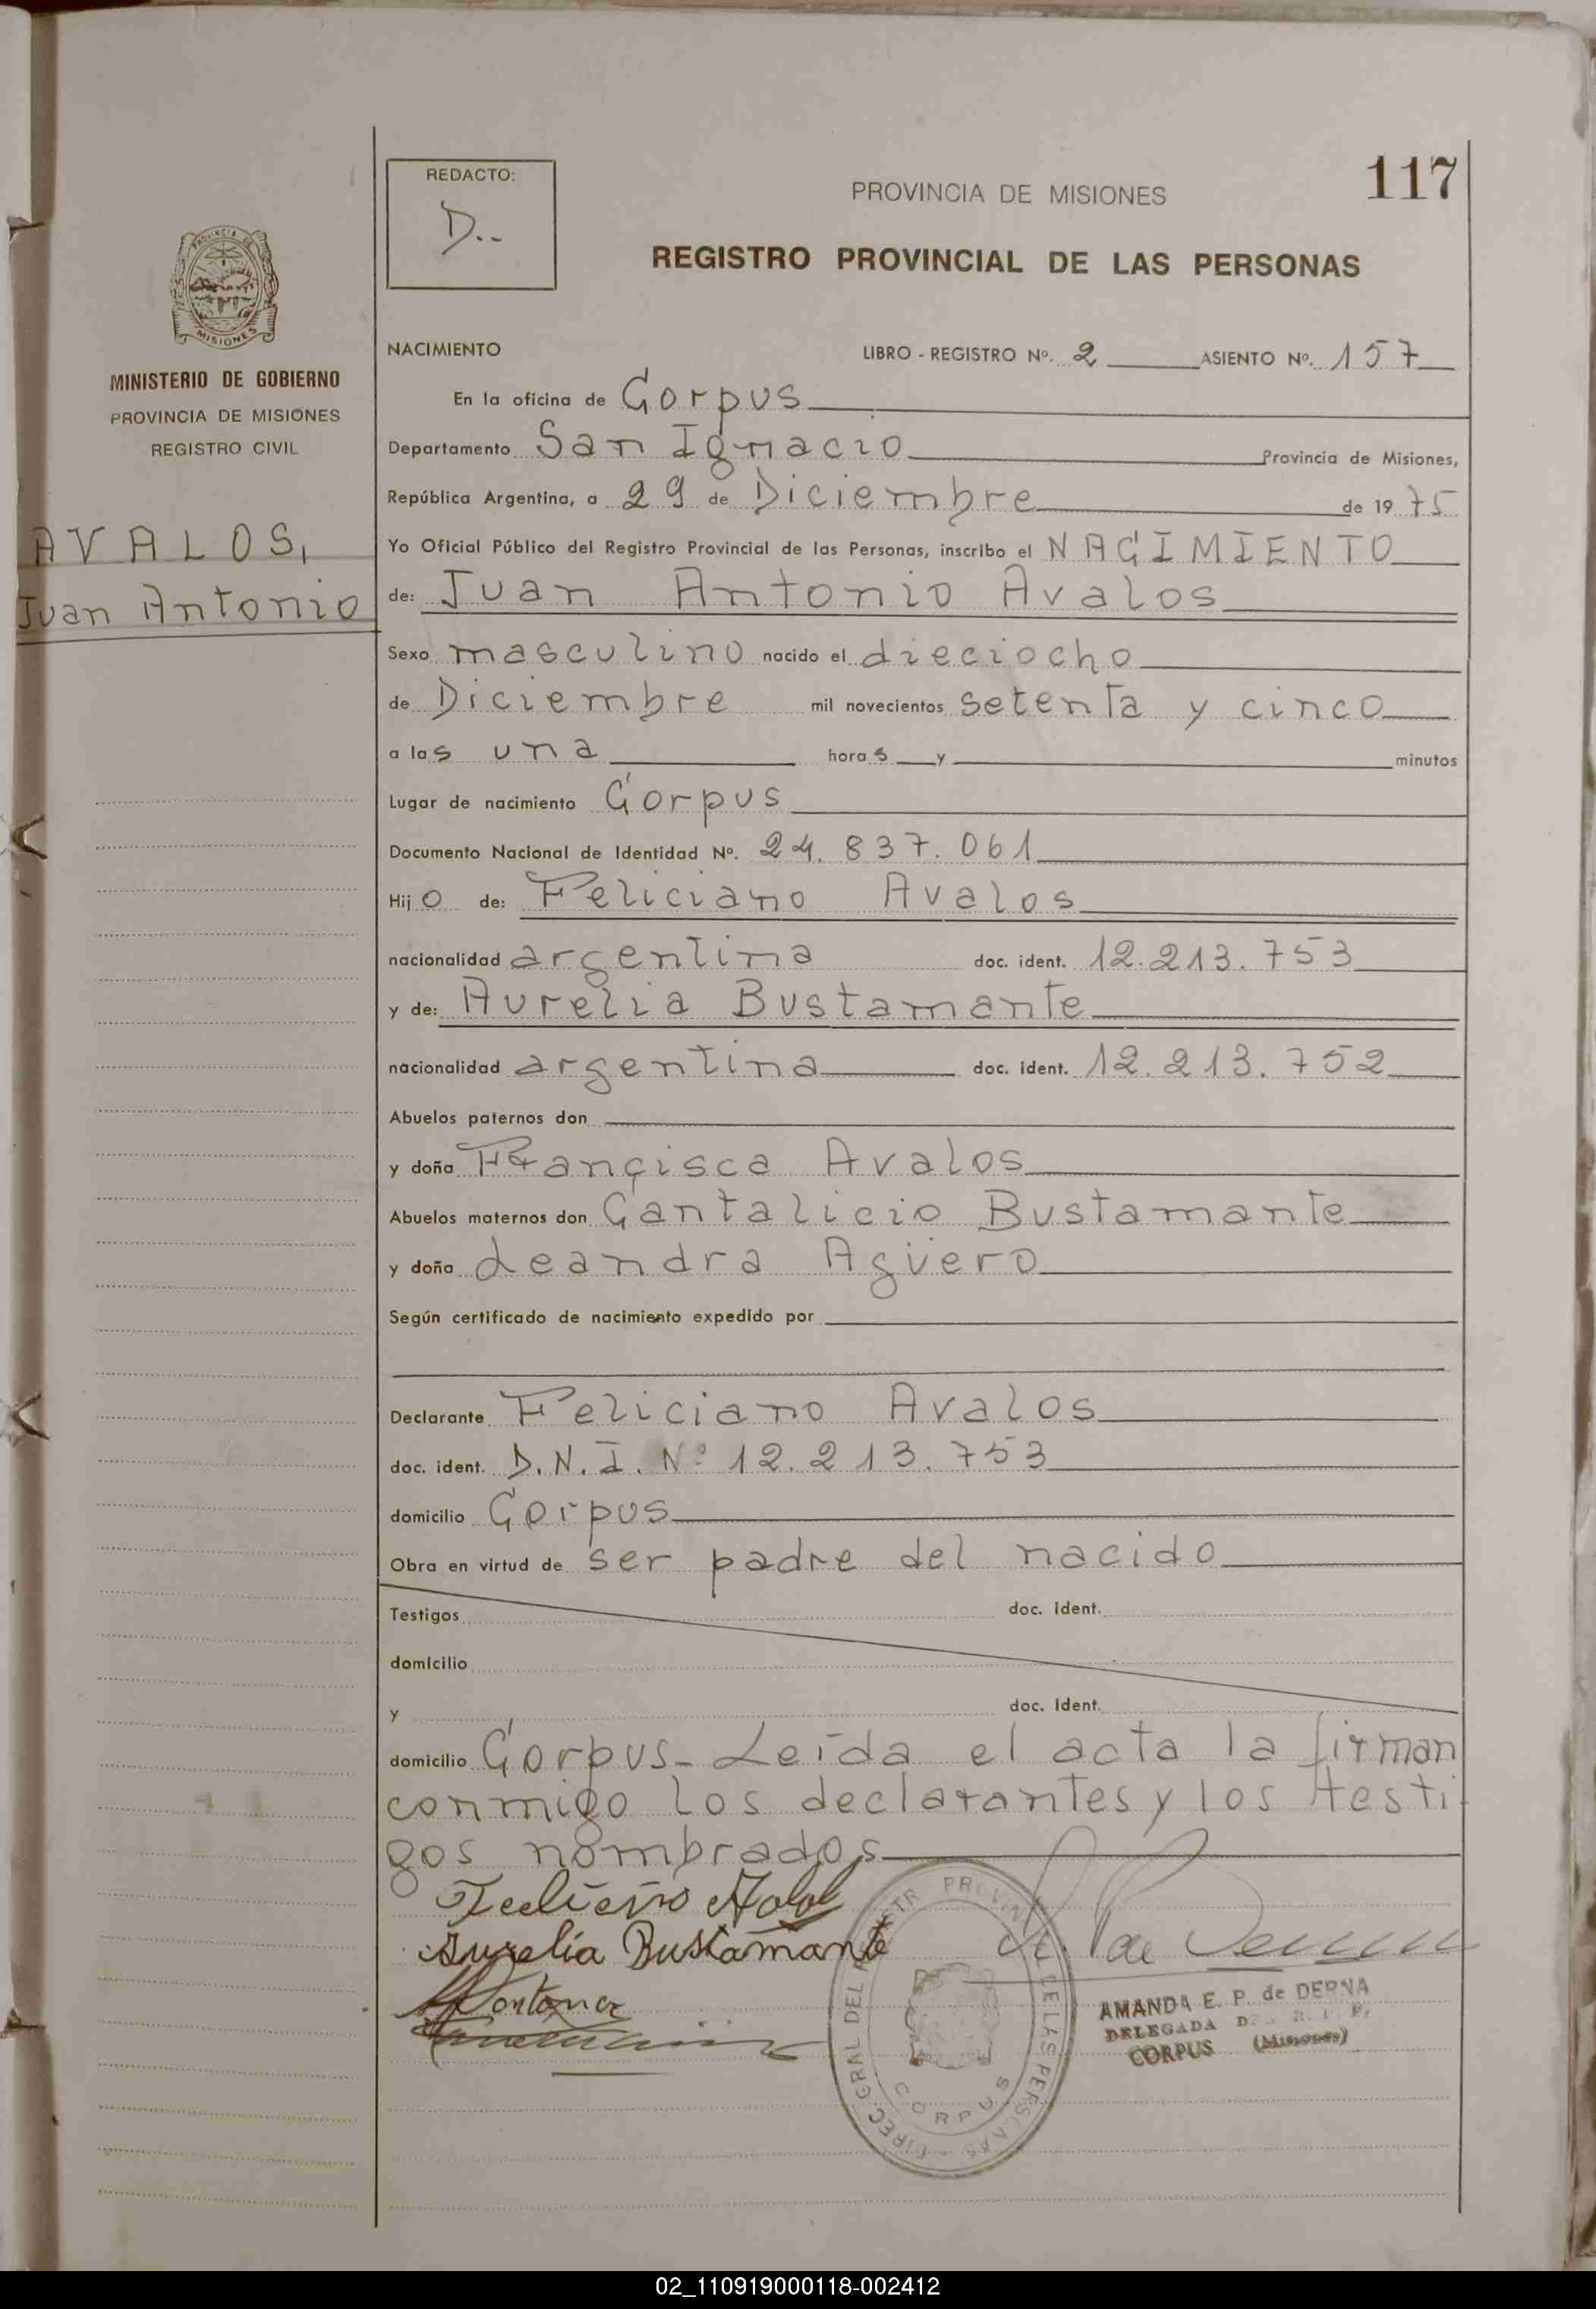 117
REDACTO:
D..
PROVINCIA DE MISIONES
REGISTRO PROVINCIAL DE LAS PERSONAS
PROVINCIA DE
MISIONES
MINISTERIO DE GOBIERNO
PROVINCIA DE MISIONES
REGISTRO CIVIL
AVALOS,
Juan Antonio
NACIMIENTO LIBRO - REGISTRO Nº. 2 ASIENTO Nº. 157
En la oficina de Corpus
Departamento San Ignacio Provincia de Misiones,
República Argentina, a 29 de Diciembre de 1975
Yo Oficial Público del Registro Provincial de las Personas, inscribo el NACIMIENTO
de: Juan Antonio Avalos
Sexo masculino nacido el dieciocho
de Diciembre mil novecientos setenta y cinco
a las una horas y minutos
Lugar de nacimiento Corpus
Documento Nacional de Identidad Nº. 24.837.061
Hijo de: Feliciano Avalos
nacionalidad argentina doc. ident. 12.213.753
y de: Aurelia Bustamante
nacionalidad argentina doc. ident. 12.213.752
Abuelos paternos don
y doña Francisca Avalos
Abuelos maternos don Cantalicio Bustamante
y doña Leandra Agüero
Según certificado de nacimiento expedido por
Declarante Feliciano Avalos
doc. ident. D.N.I. Nº 12.213.753
domicilio Corpus
Obra en virtud de ser padre del nacido
Testigos doc. ident.
domicilio
y doc. ident.
domicilio Corpus- Leída el acta la firman
conmigo los declarantes y los testi-
gos nombrados
Aurelia Bustamante
DIREC GRAL DEL REGISTR PROVINCIAL DE LAS PERSONAS
CORPUS
AMANDA E. P. de DERNA
DELEGADA
CORPUS (Misiones)
02_110919000118-002412